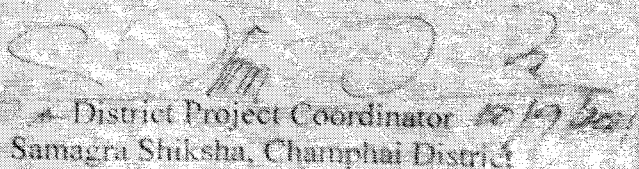 District Project Coordinator
Samagra Shiksha, Champhai District